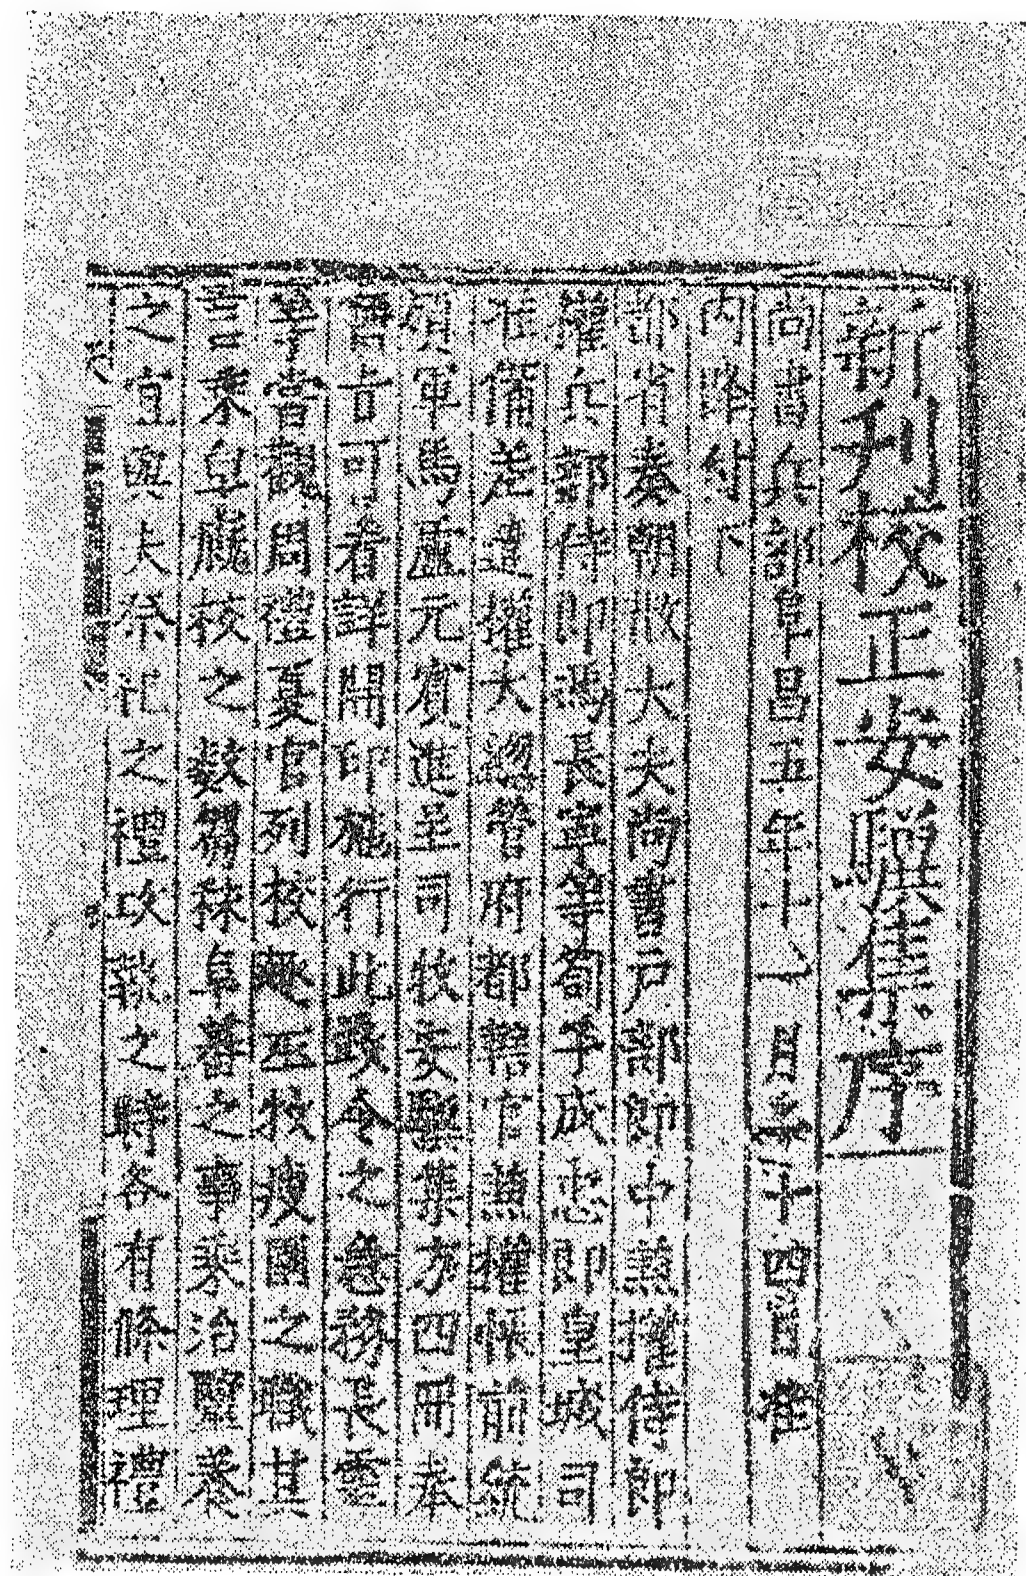 新刊校正安驥集序
尚書兵部阜昌五年十一月二十四日准
內降付下
都省奏朝散大夫尚書戶部郎中兼權侍郎
權兵部侍郎馮長寧等劄子成忠郎皇城司
准備差遣權大總管府都轄官兼權帳前統
領軍馬盧元賓進呈司牧安驥集方四冊奉
齊旨可看詳開印施行此政令之急務長寧
等嘗觀周禮夏官列校趣巫牧廋圉之職其
言乘皁廄校之數芻秣阜蕃之事樂治醫養
之宜與夫祭祀之禮攻執之時各有條理禮